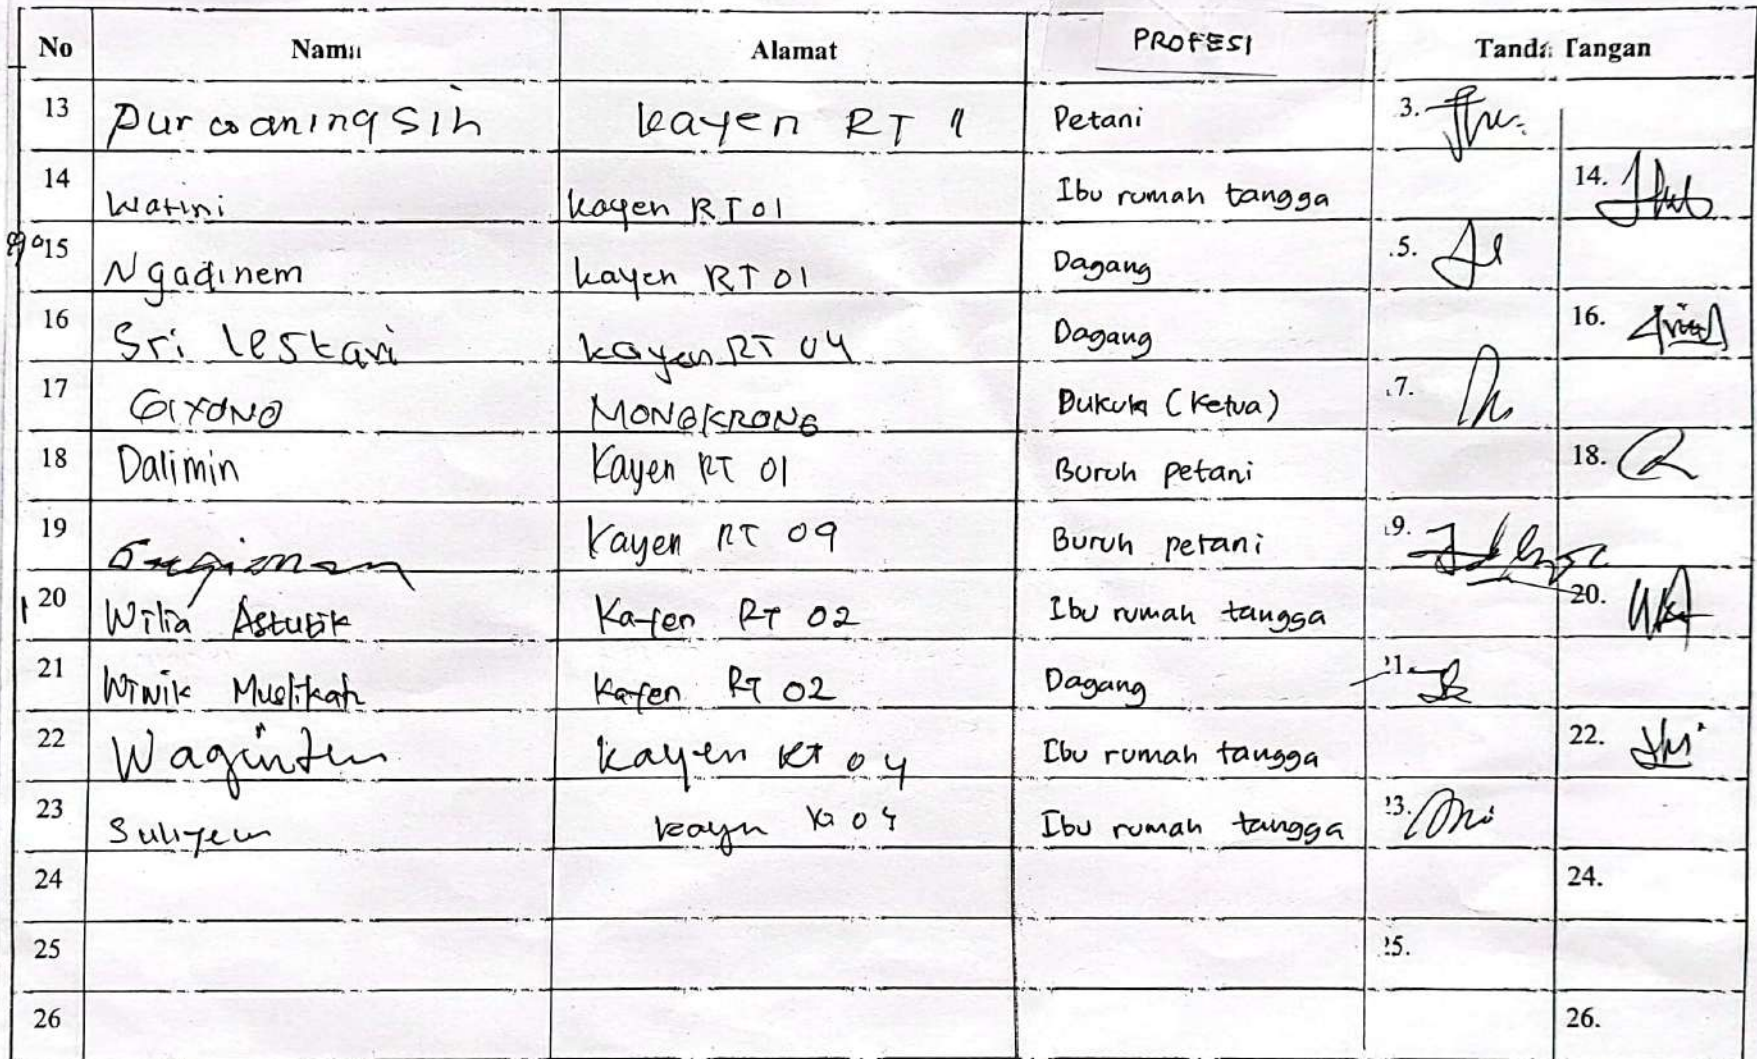 No Nama Alamat PROFESI Tanda Tangan
13 Purwaningsih Kayen RT 11 Petani 3.
14 Watini Kayen RT 01 Ibu rumah tangga 14.
15 Ngadinem Kayen RT 01 Dagang .5.
16 Sri lestari Kayen RT 04 Dagang 16.
17 GIYONO MONGKRONG (Ketua) .7.
18 Dalimin Kayen RT 01 Buruh petani 18.
19 Kayen RT 09 Buruh petani 19.
20 Wilia Astutik Kayen RT 02 Ibu rumah tangga 20.
21 Wiwik Muslikah Kayen RT 02 Dagang 21.
22 Waginten Kayen RT 04 Ibu rumah tangga 22.
23 Suliyem Kayn Rt 04 Ibu rumah tangga 23.
24 24.
25 25.
26 26.